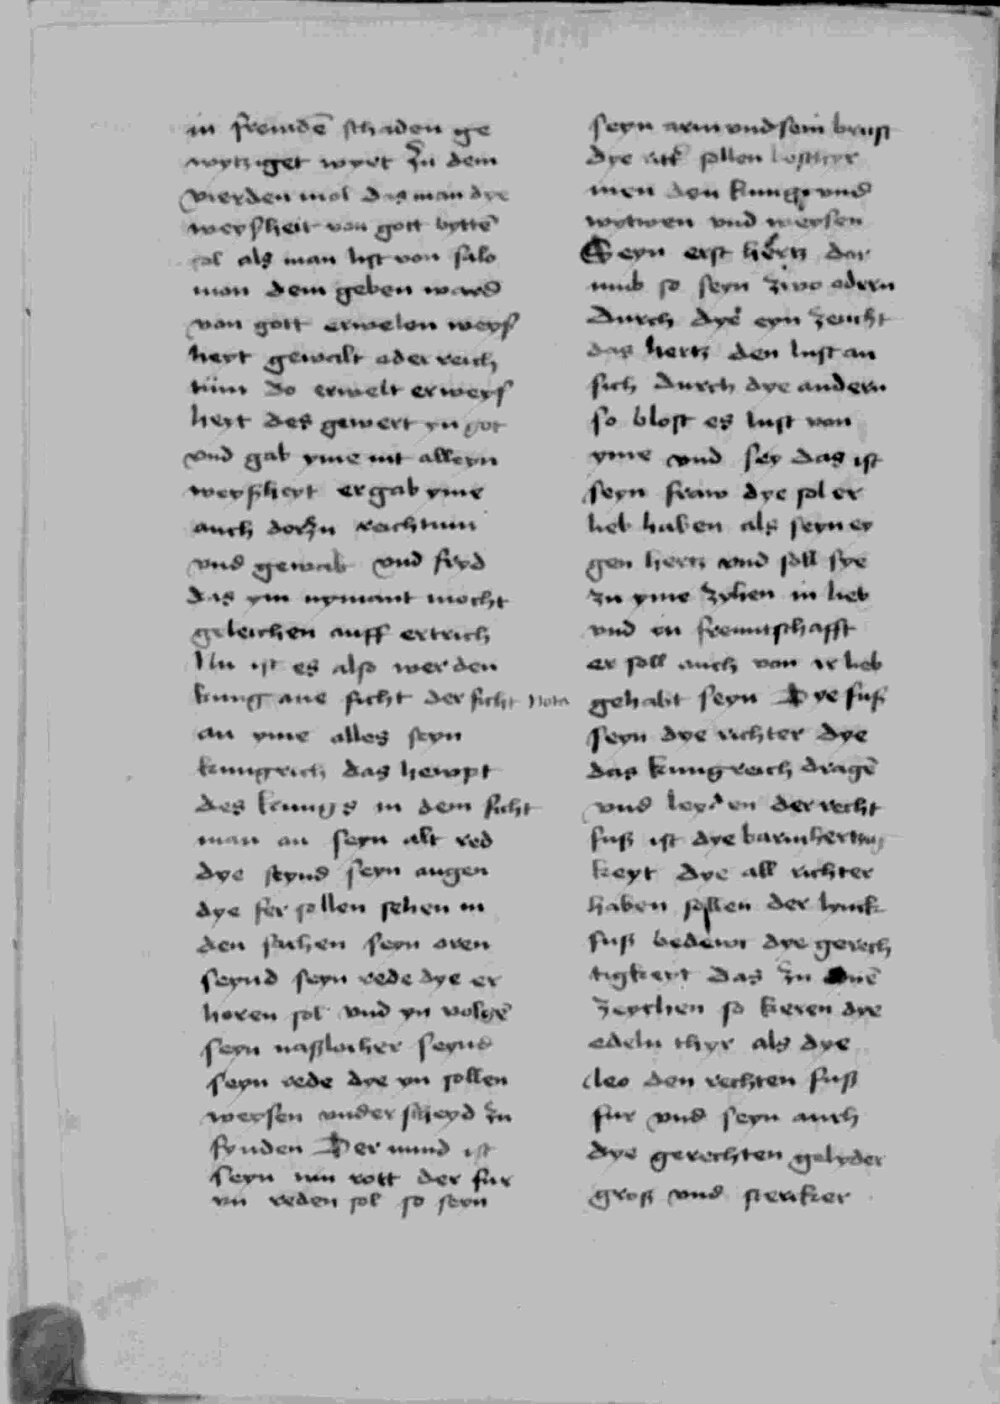 in fremdē schaden ge
wytziget wyrt zu dem
vierden mol das man dye
weyßheit von gott byttē
sol als man list von salo
mon dem geben ward
von gott erwelen weyß
heyt gewalt oder reich
tüm do erwelt er weyß
heyt des gewert yn got
vnd gab yme nit alleyn
weyßheyt er gab yme
auch dorzu reichtum
vnd gewalt vnd fryd
das ym nymant mocht
geleichen auff ertrich
Nu ist es also werden
kunig ane sicht der sicht Nota
an yme alles seyn
kungrich das hewpt
des kunigs in dem sicht
man an seyn alt red
dye seynd seyn augen
dye fer sollen sehen in
den sachen seyn oren
seynd seyn rede dye er
horen sol vnd yn volgē
seyn naßlocher seynd
seyn rede dye yn sollen
weysen vnderscheyd zu
fynden Der mund ist
seyn rott der fur
yn reden sol so seyn
seyn arm vnd sein brust
dye ritt sollen
men den kunig vnd
wytwen vnd weysen
Seyn erst hertz dar
umb so seyn zwo odern
durch dye eyn zeucht
das hertz den lust an
sich durch dye andern
so blost es lust von
yme vnd sey das ist
seyn fraw dye sol er
lieb haben als seyn ey
gen hertz vnd soll sye
zu yme zyhen in lieb
vnd in freuntschafft
er soll auch von ir lieb
gehabt seyn Dye fuß
seyn dye richter dye
das kungreich dragē
vnd leyden der recht
fuß ist dye barmhertzig
keyt dye all richter
haben sollen der lynck
fuß bedewt dye gerech
tigkeyt das zu
zeychen so kieren dye
edeln thyr als dye
leo den rechten fuß
fur vnd seyn auch
dye gerechten gelyder
groß vnd stercker